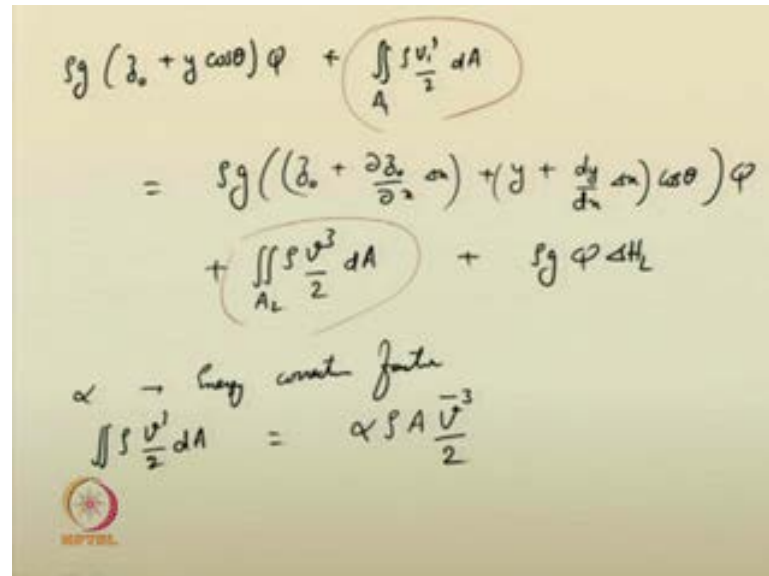 ρg (z₀ + y cosθ) Q + ∬_A₁ ρ v₁³/2 dA
= ρg ((z₀ + ∂z₀/∂x Δx) + (y + dy/dx Δx) cosθ) Q
+ ∬_A₂ ρ v³/2 dA + ρg Q ΔH_L
α → Energy correction factor
∬ ρ v³/2 dA = α ρ A v̄³/2
NPTEL